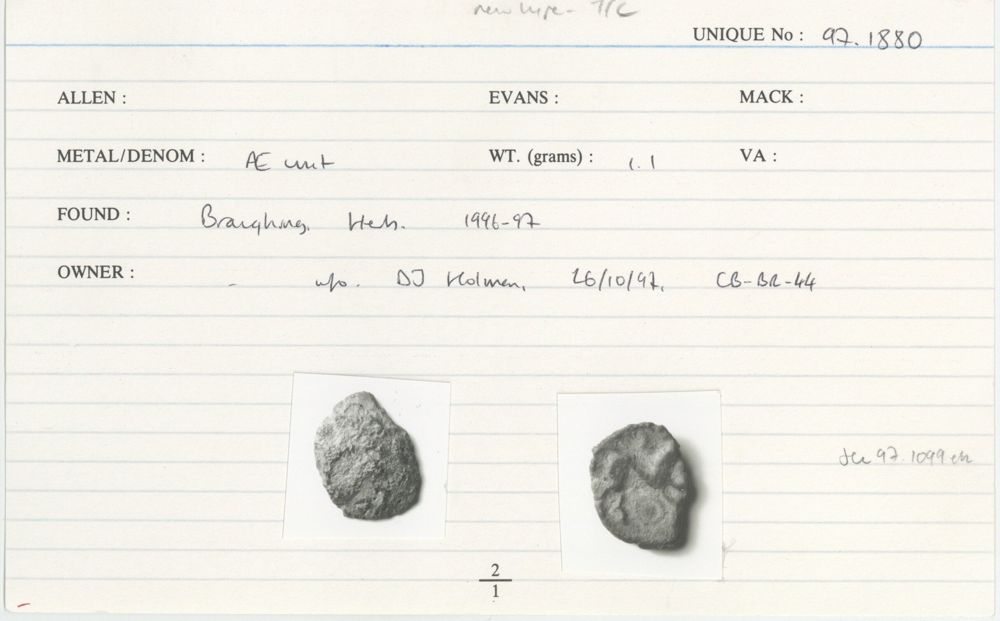 new type - T/C
UNIQUE No : 97.1880
ALLEN : EVANS : MACK :
METAL/DENOM : Æ unit WT. (grams) : 1.1 VA :
FOUND : Braughing, Herts. 1996-97
OWNER : - DJ Holman, 26/10/97, CB-BR-44
See 97.1099
2
1